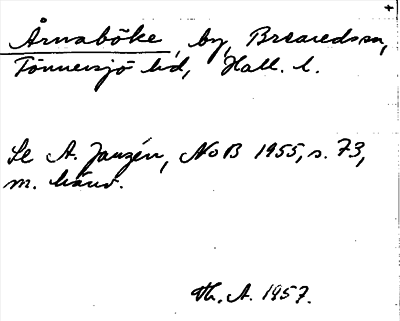 Årnaböke, by, Breareds sn,
Tönnersjö hd, Hall. l.
Se A. Janzén, NoB 1955, s. 73,
m. hänv.
Th. A. 1957.